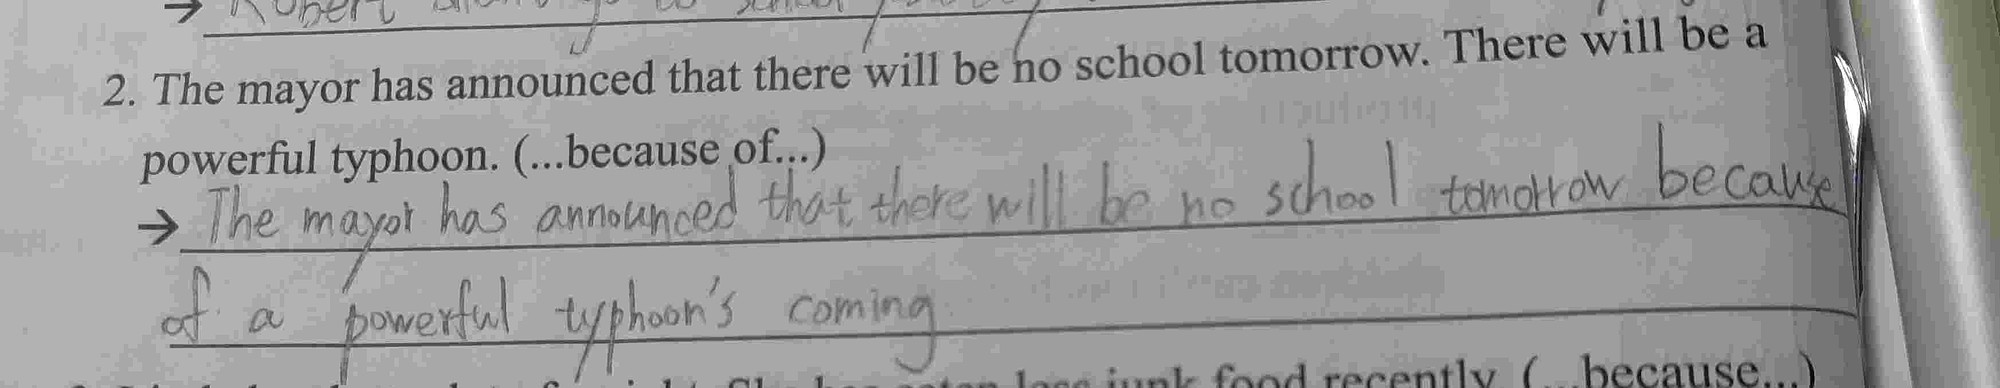 → Robert didn't go to school
2. The mayor has announced that there will be no school tomorrow. There will be a
powerful typhoon. (...because of...)
→ The mayor has announced that there will be no school tomorrow because
of a powerful typhoon's coming
less junk food recently. (...because...)